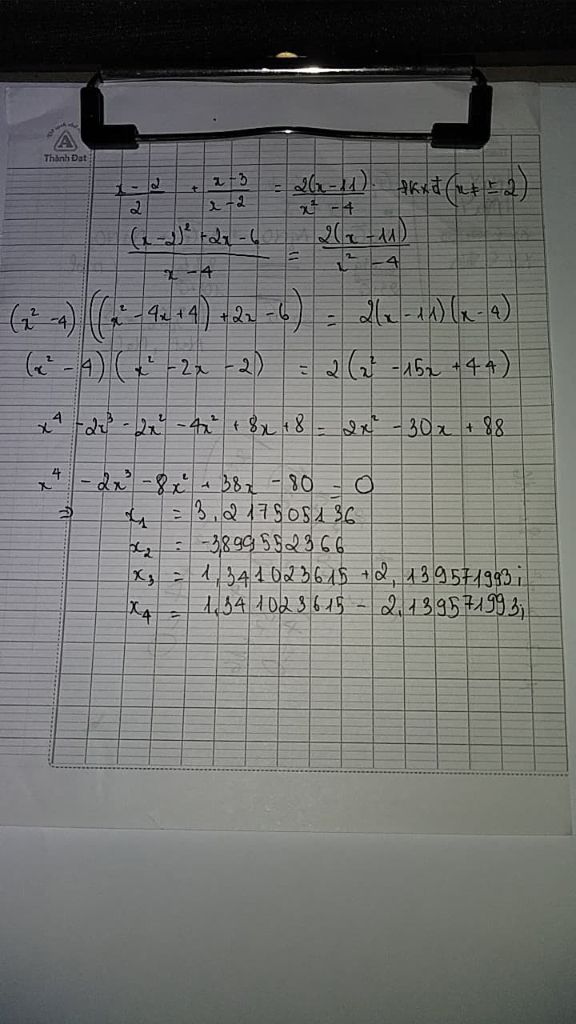 Thành Đạt
x - 2 / 2 + x - 3 / x - 2 = 2(x - 11) / x² - 4 . ĐKXĐ (x ≠ ± 2)
(x - 2)² + 2x - 6 / x - 4 = 2(x - 11) / x² - 4
(x² - 4) ((x² - 4x + 4) + 2x - 6) = 2(x - 11)(x - 4)
(x² - 4) (x² - 2x - 2) = 2 (x² - 15x + 44)
x⁴ - 2x³ - 2x² - 4x² + 8x + 8 = 2x² - 30x + 88
x⁴ - 2x³ - 8x² + 38x - 80 = 0
⇒ x₁ = 3,217505136
x₂ = -3,899552366
x₃ = 1,341023615 + 2,139571993i
x₄ = 1,341023615 - 2,139571993i